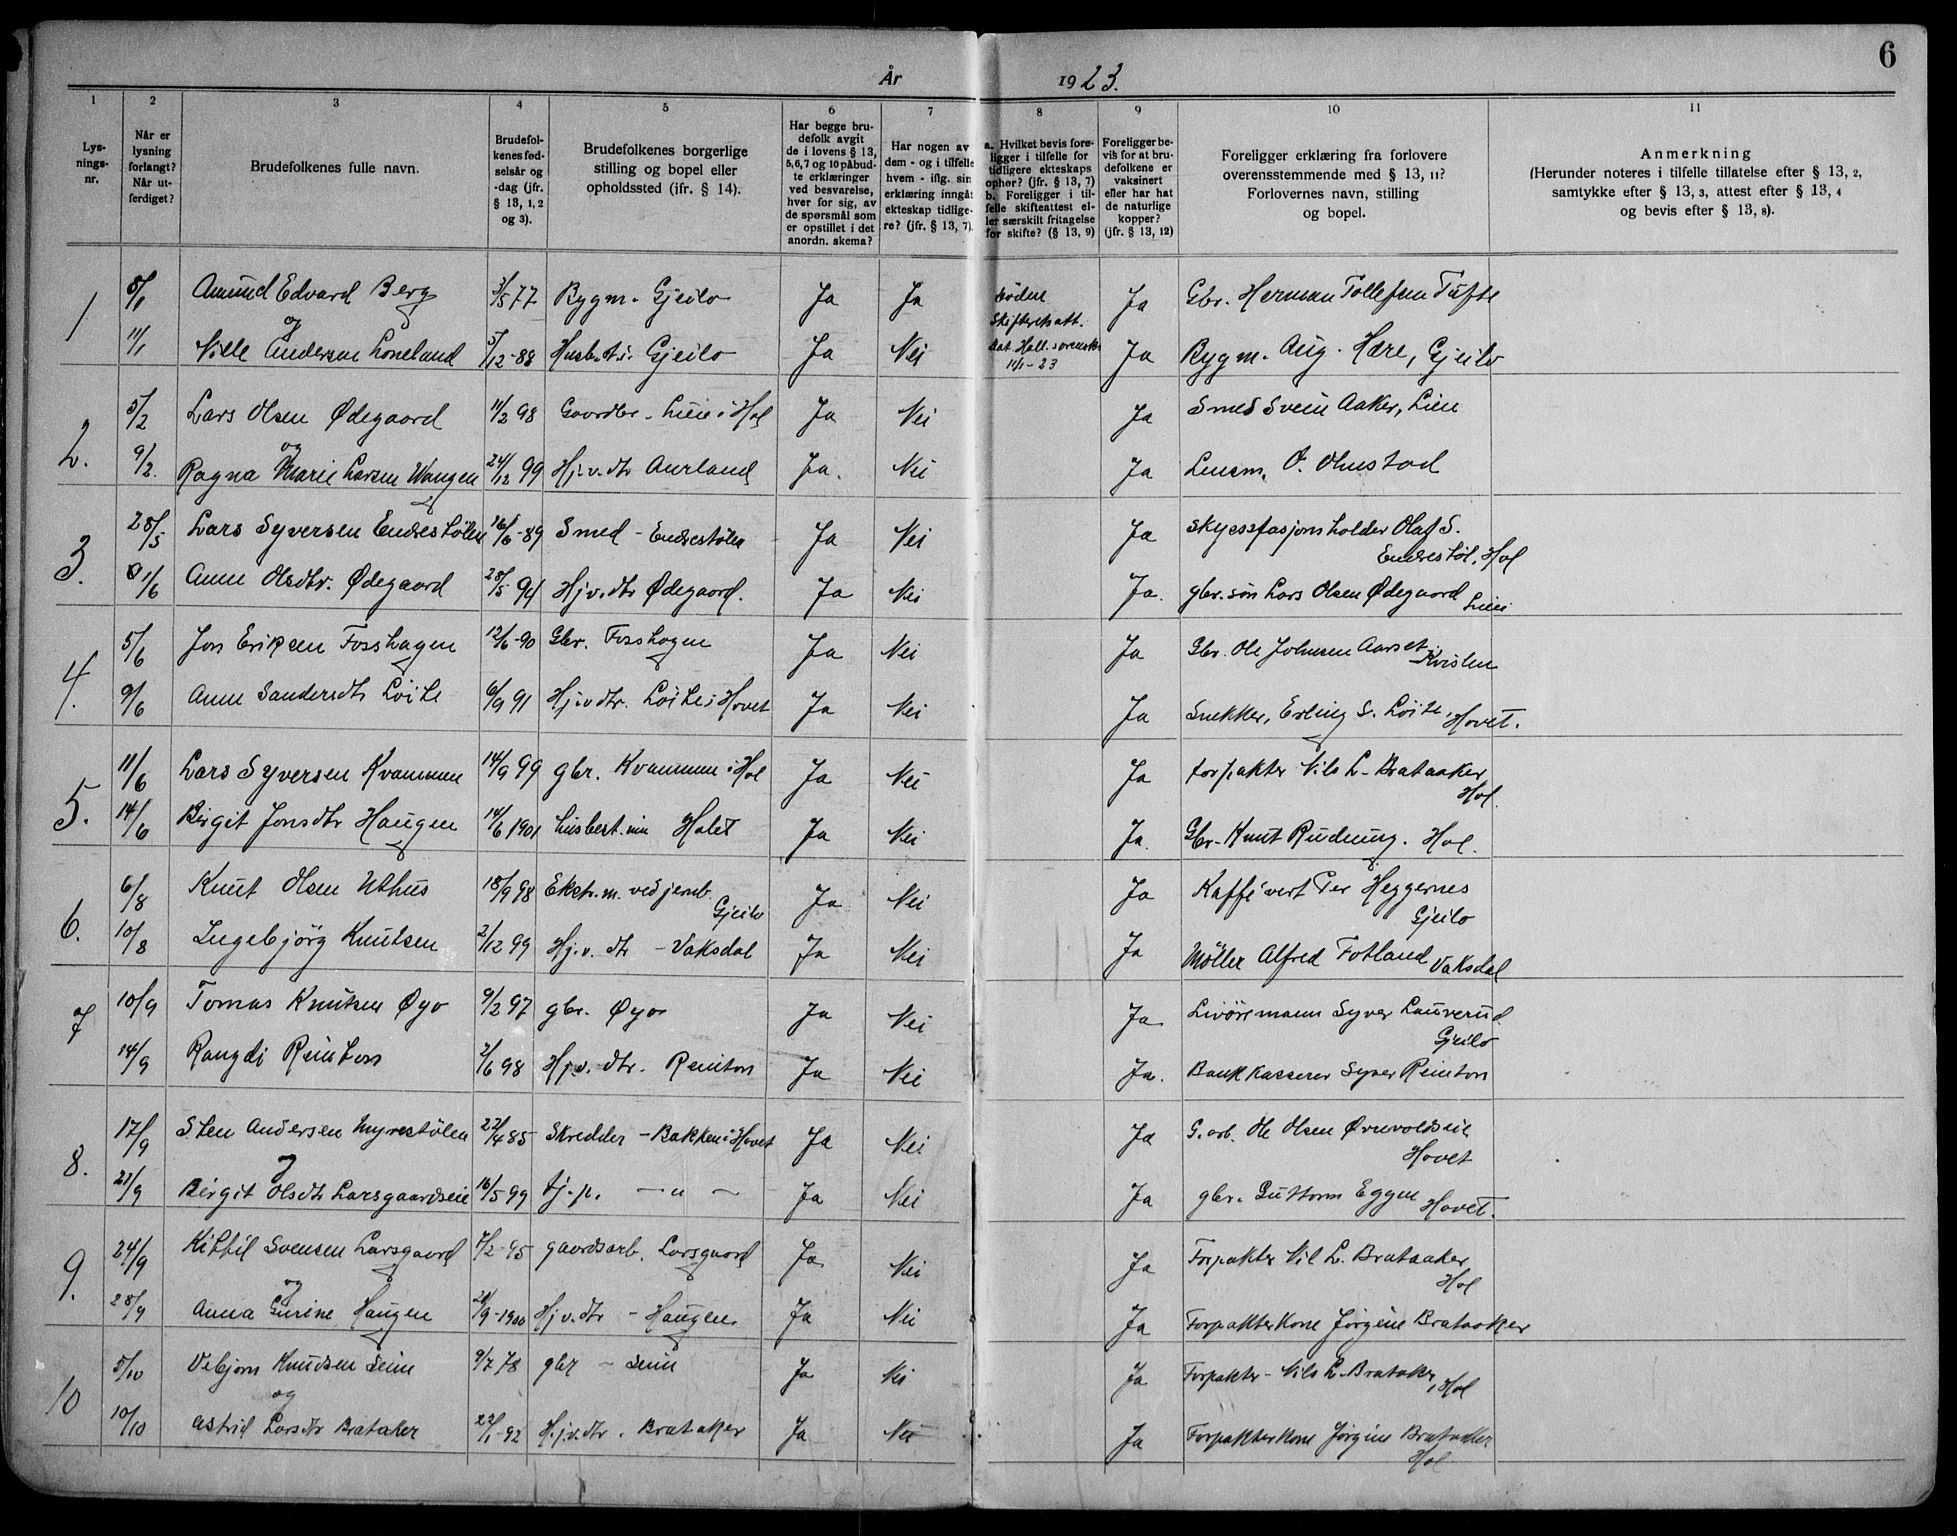 6
År 1923.
1 2 3 4 5 6 7 8 9 10 11
Lys-
nings-
nr.
Når er
lysning
forlangt?
Når ut-
ferdiget?
Brudefolkenes fulle navn.
Brudefol-
kenes fød-
selsår og
-dag (jfr.
§ 13, 1, 2
og 3).
Brudefolkenes borgerlige
stilling og bopel eller
opholdssted (jfr. § 14).
Har begge bru-
defolk avgit
de i lovens § 13,
5, 6, 7 og 10 påbud-
te erklæringer
ved besvarelse,
hver for sig, av
de spørsmål som
er opstillet i det
anordn. skema?
Har nogen av
dem - og i tilfelle
hvem - iflg. sin
erklæring inngåt
ekteskap tidlige-
re? (jfr. § 13, 7).
a. Hvilket bevis fore-
ligger i tilfelle for
tidligere ekteskaps
ophør? (jfr. § 13, 7)
b. Foreligger i til-
felle skifteattest el-
ler særskilt fritagelse
for skifte? (§ 13, 9)
Foreligger be-
vis for at bru-
defolkene er
vaksinert
eller har hat
de naturlige
kopper?
(jfr. § 13, 12)
Foreligger erklæring fra forlovere
overensstemmende med § 13, 11?
Forlovernes navn, stilling
og bopel.
Anmerkning
(Herunder noteres i tilfelle tillatelse efter § 13, 2,
samtykke efter § 13, 3, attest efter § 13, 4
og bevis efter § 13, 8).
1 8/1 Amund Edvard Berg 3/5 77 Bygm. Gjeilo Ja Ja Ja Gbr. Herman Tollefsen Tufte
og
Skifteratt.
11/1 Nille Andersen Loneland 5/12-88 Gjeilo Ja Nei 11/1-23 Ja Bygm. Aug. Hære, Gjeilo
2. 5/2 Lars Olsen Ødegaard 11/2 98 Gaardbr. Lien i Hol Ja Nei Ja Smed Svein Aaker, Lien
og
9/2. Ragna Marie Larsen Wangen 24/12 99 Hj.v.dtr Aurland Ja. Nei Ja Lensm. O. Olmstad
3. 28/5 Lars Syversen Endrestølen 16/6-89 Smed - Endrestølen Ja Nei Ja skysstasjonsholder Olaf S.
Endrestøl, Hol
1/6 Anne Olsdtr. Ødegaard 28/5 94 Hj.v.dtr Ødegaard. Ja Nei Ja. gbr.søn Lars Olsen Ødegaard Lien
4. 5/6 Jon Eriksen Fosshagen 12/6-90 Gbr. Fosshagen Ja Nei Ja Gbr. Ole Johnsen Aarset, Kvislen
9/6 Anne Sandersdtr Löite 6/9 91 Hj.v.dtr. Löite i Hovet Ja Nei Ja Snekker, Erling S. Löite, Hovet.
5. 11/6 Lars Syversen Kvammen 14/9 99 gbr. Kvammen i Hol Ja Nei Ja forpakter Nils L. Brataaker
Hol.
14/6 Birgit Jonsdtr Haugen 14/6 1901 Holet Ja Nei Ja. Gbr. Knut Rudning. Hol.
6. 6/8 Knut Olsen Uthus 18/9 98 Ekstr.m. ved jernb. Ja Nei Ja Kaffivert Per Heggernes
Gjeilo Gjeilo
10/8 Ingebjörg Knutsen 2/12 99 Hj.v. dtr - Vaksdal Ja Nei Ja Möller Alfred Fotland Vaksdal
7 10/9 Tomas Knutsen Øyo 9/2 97 gbr. Øyo Ja Nei Ja Livöremann Syver Lauverud
Gjeilo
14/9 Rangdi Reinton 2/6 98 Hj.v. dtr. Reinton Ja Nei Ja. Bankkasserer Syver Reinton
8. 17/9 Sten Andersen Myrestølen 22/4 85 Skredder - Bakken i Hovet Ja Nei Ja G.arb. Ole Olsen Ørnvoldseie
og Hovet
21/9 Birgit Olsdtr Larsgaardseie 16/5 99 tj.p. — " — Ja Nei Ja gbr. Guttorm Eggen Hovet.
9. 24/9 Kittil Svensen Larsgaard 7/2-95 gaardsarb. Larsgaard Ja Nei Ja Forpakter Nil L. Brataaker
og Hol
28/9 Anna Gurine Haugen 21/9-1900 Hj.v.dtr - Haugen. Ja Nei Ja Forpakterkone Jørgine Brataaker
10 5/10 Vebjørn Knudsen Seim 9/7 78 gbr - Seim Ja Nei Ja Forpakter - Nils L. Brataker, Hol
og
10/10 Astrid Larsdtr Brataker 22/1-92 H.j.v.dtr. Brataker Ja Nei Ja Forpakterkone Jørgine Brataaker
Hol